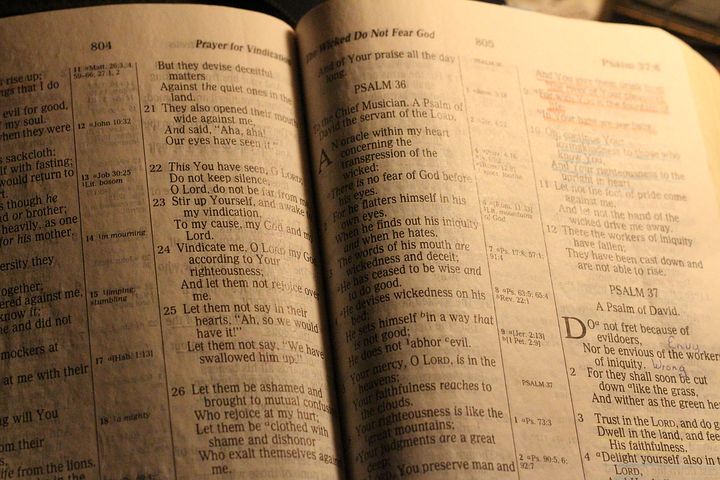 804
Prayer for Vindication
rise up;
ings that I do
evil for good,
my soul.
when they were
sackcloth:
self with fasting;
would return to
as though he
d or brother;
heavily, as one
for his mother.
ersity they
ogether;
ered against me,
know it;
me and did not
mockers at
at me with their
ng will You
from their
life from the lions.
11 a Matt. 26:3, 4,
59–66; 27:1, 2
12 a John 10:32
13 a Job 30:25
1 Lit. bosom
14 1 in mourning
15 1 limping,
stumbling
17 a [Hab. 1:13]
18 1 a mighty
But they devise deceitful
matters
Against the quiet ones in the
land.
21 They also opened their mouth
wide against me,
And said, "Aha, aha!
Our eyes have seen it."
22 This You have seen, O LORD;
Do not keep silence.
O Lord, do not be far from me.
23 Stir up Yourself, and awake
my vindication,
To my cause, my God and my
Lord.
24 Vindicate me, O LORD my God,
according to Your
righteousness;
And let them not rejoice over
me.
25 Let them not say in their
hearts, "Ah, so we would
have it!"
Let them not say, "We have
swallowed him up."
26 Let them be ashamed and
brought to mutual confusion
Who rejoice at my hurt;
Let them be a clothed with
shame and dishonor
Who exalt themselves against
me.
The Wicked Do Not Fear God
805
Psalm 37:4
And of Your praise all the day
long.
PSALM 36
To the Chief Musician. A Psalm of
David the servant of the LORD.
AN oracle within my heart
concerning the
transgression of the
wicked:
There is no fear of God before
his eyes.
2 For he flatters himself in his
own eyes,
When he finds out his iniquity
and when he hates.
3 The words of his mouth are
wickedness and deceit;
He has ceased to be wise and
to do good.
4 He devises wickedness on his
bed;
He sets himself b in a way that
is not good;
He does not 1 abhor c evil.
Your mercy, O LORD, is in the
heavens;
Your faithfulness reaches to
the clouds.
Your righteousness is like the
great mountains;
Your judgments are a great
deep;
LORD, You preserve man and
7 a Ps. 17:8; 57:1;
91:4
8 a Ps. 63:5; 65:4
b Rev. 22:1
9 a [Jer. 2:13]
b [1 Pet. 2:9]
PSALM 37
1 a Ps. 73:3
2 a Ps. 90:5, 6;
92:7
10 Oh, continue Your
lovingkindness to those who
know You,
And Your righteousness to the
upright in heart.
11 Let not the foot of pride come
against me,
And let not the hand of the
wicked drive me away.
12 There the workers of iniquity
have fallen;
They have been cast down and
are not able to rise.
PSALM 37
A Psalm of David.
DO a not fret because of
evildoers,
Envy
Nor be envious of the workers
of iniquity.
Wrong
2 For they shall soon be cut
down a like the grass,
And wither as the green he
3 Trust in the LORD, and do g
Dwell in the land, and fee
His faithfulness.
4 a Delight yourself also in t
LORD,